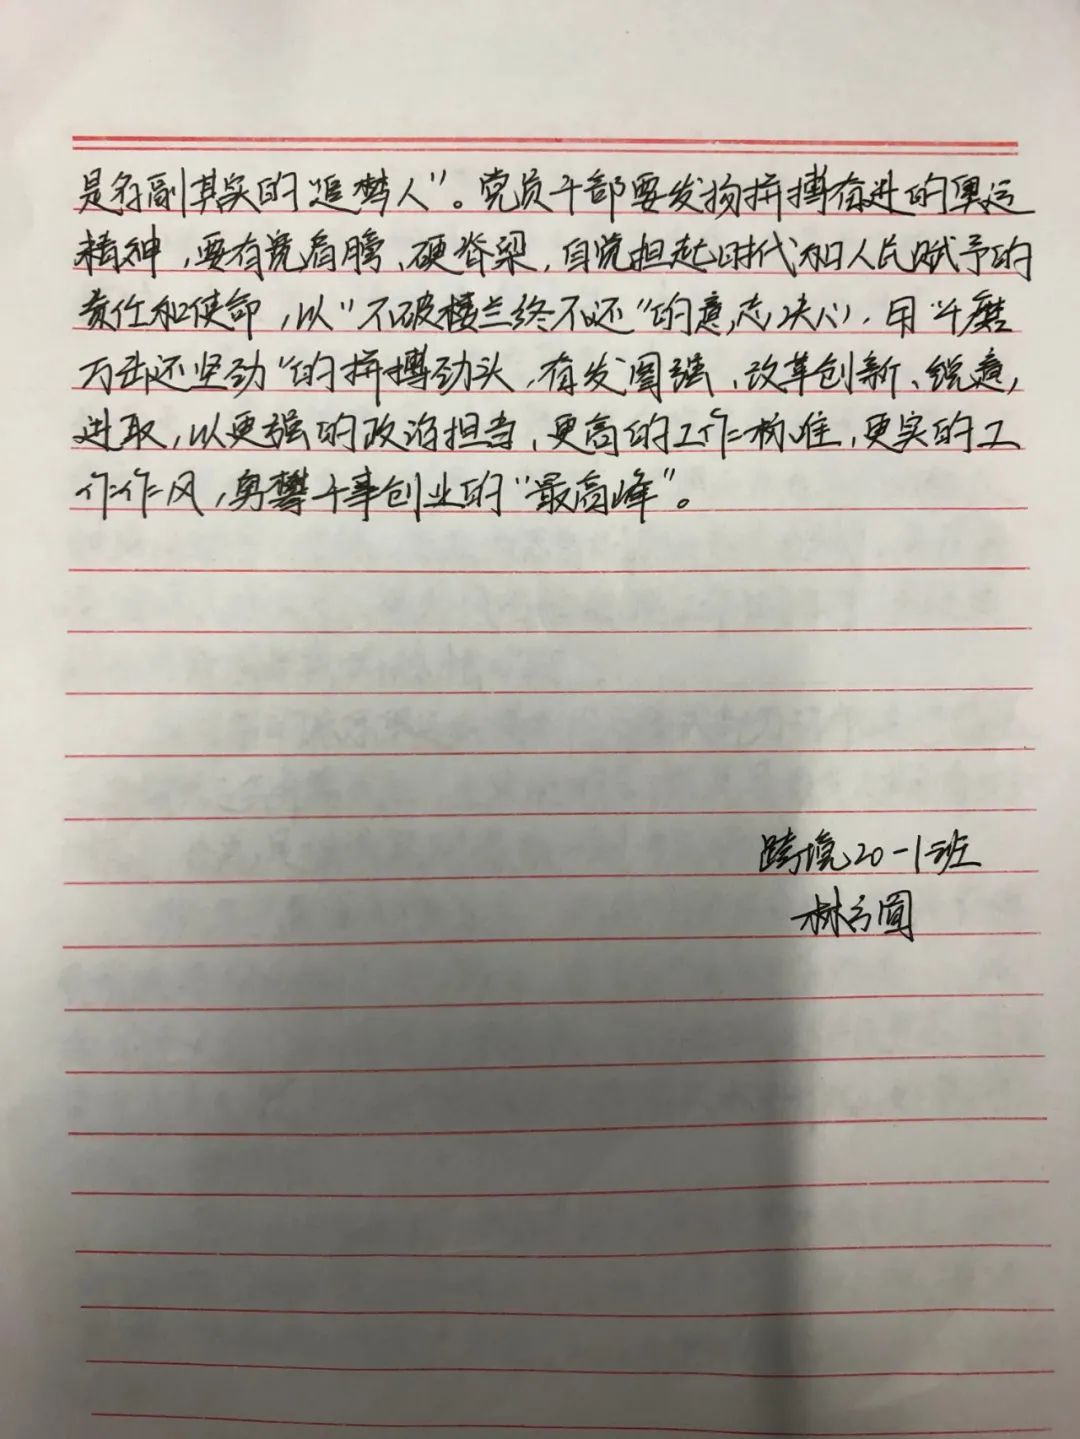 是名副其实的“追梦人”。党员干部要发扬拼搏奋进的奥运
精神，要有宽肩膀、硬脊梁，自觉担起时代和人民赋予的
责任和使命，以“不破楼兰终不还”的意志决心，用“千磨
万击还坚劲”的拼搏劲头，奋发图强、改革创新、锐意
进取，以更强的政治担当，更高的工作标准，更实的工
作作风，勇攀干事创业的“最高峰”。
跨境20-1班
林方圆